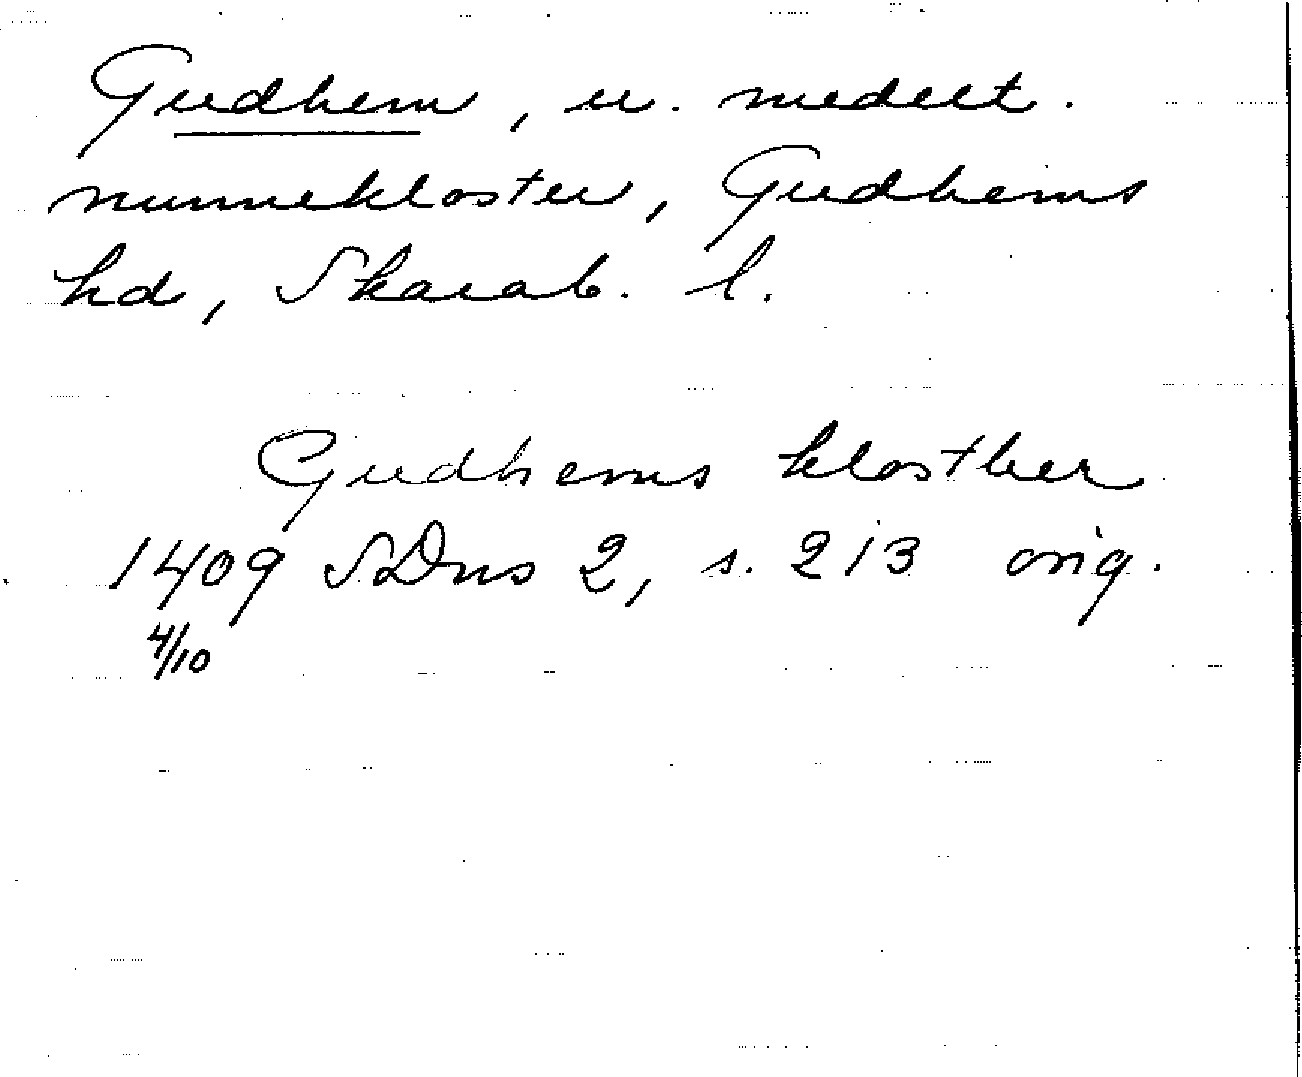 Gudhem, u. medelt.
nunnekloster, Gudhems
hd, Skarab. l.
Gudhems klosther
1409 SDns 2, s. 213 orig.
4/10